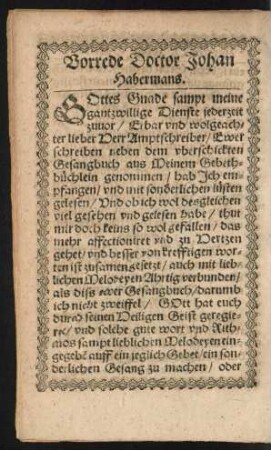 Vorrede Doctor Johan
Habermans.
GOttes Gnade sampt meine
gantzwillige Dienste jederzeit
zuuor / Erbar vnd wolgeach-
ter lieber Herr Amptschreiber / Ewer
schreiben neben dem vberschickten
Gesangbuch aus Meinem Gebeth-
büchlein genommen / hab Jch em-
pfangen / vnd mit sonderlichen lüsten
gelesen / Vnd ob ich wol desgleichen
viel gesehen vnd gelesen habe / thut
mir doch keins so wol gefallen / das
mehr affectioniret vnd zu Hertzen
gehet / vnd besser von krefftigen wor-
ten ist zusamengesetzt / auch mit lieb-
lichen Melodeyen Ahrtig verbunden /
als diß ewer Gesangbuch / darumb
ich nicht zweiffel / GOtt hat euch
durch seinen Heiligen Geist geregie-
ret / vnd solche gute wort vnd Rith-
mos sampt lieblichen Melodeyen ein-
gegebē auff ein jeglich Gebet / ein son-
derlichen Gesang zu machen / oder